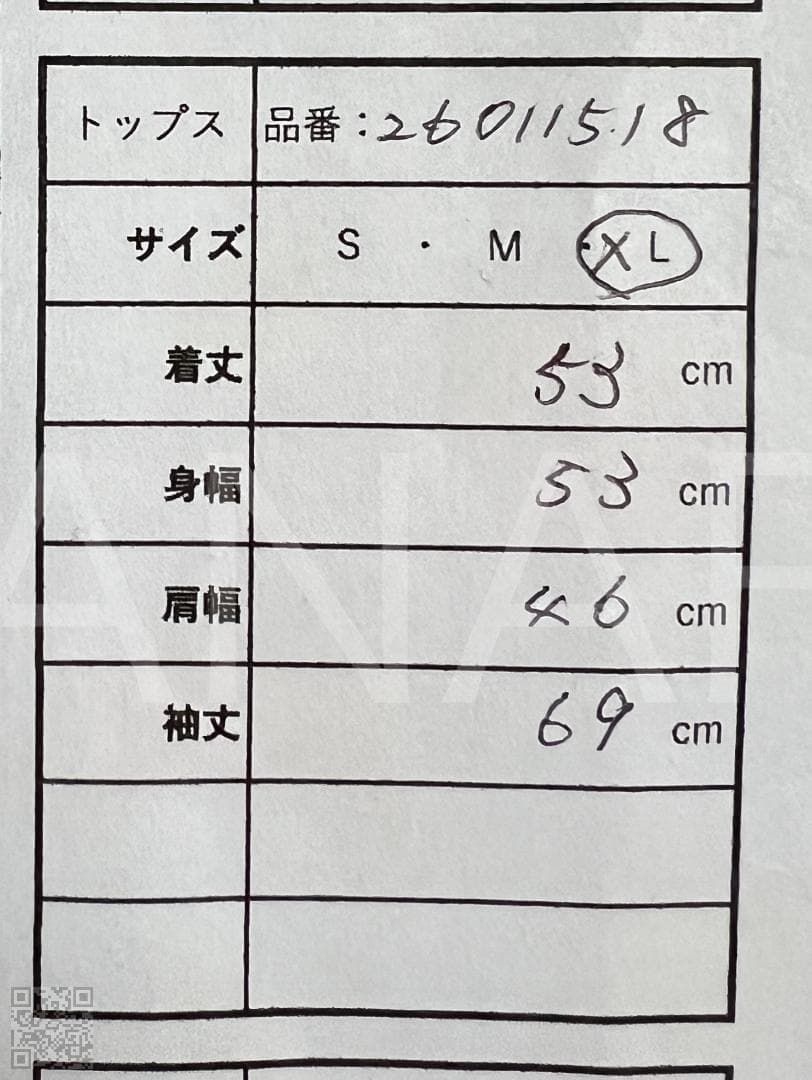 トップス 品番：260115.18
サイズ S ・ M ・XL
着丈 53 cm
身幅 53 cm
肩幅 46 cm
袖丈 69 cm